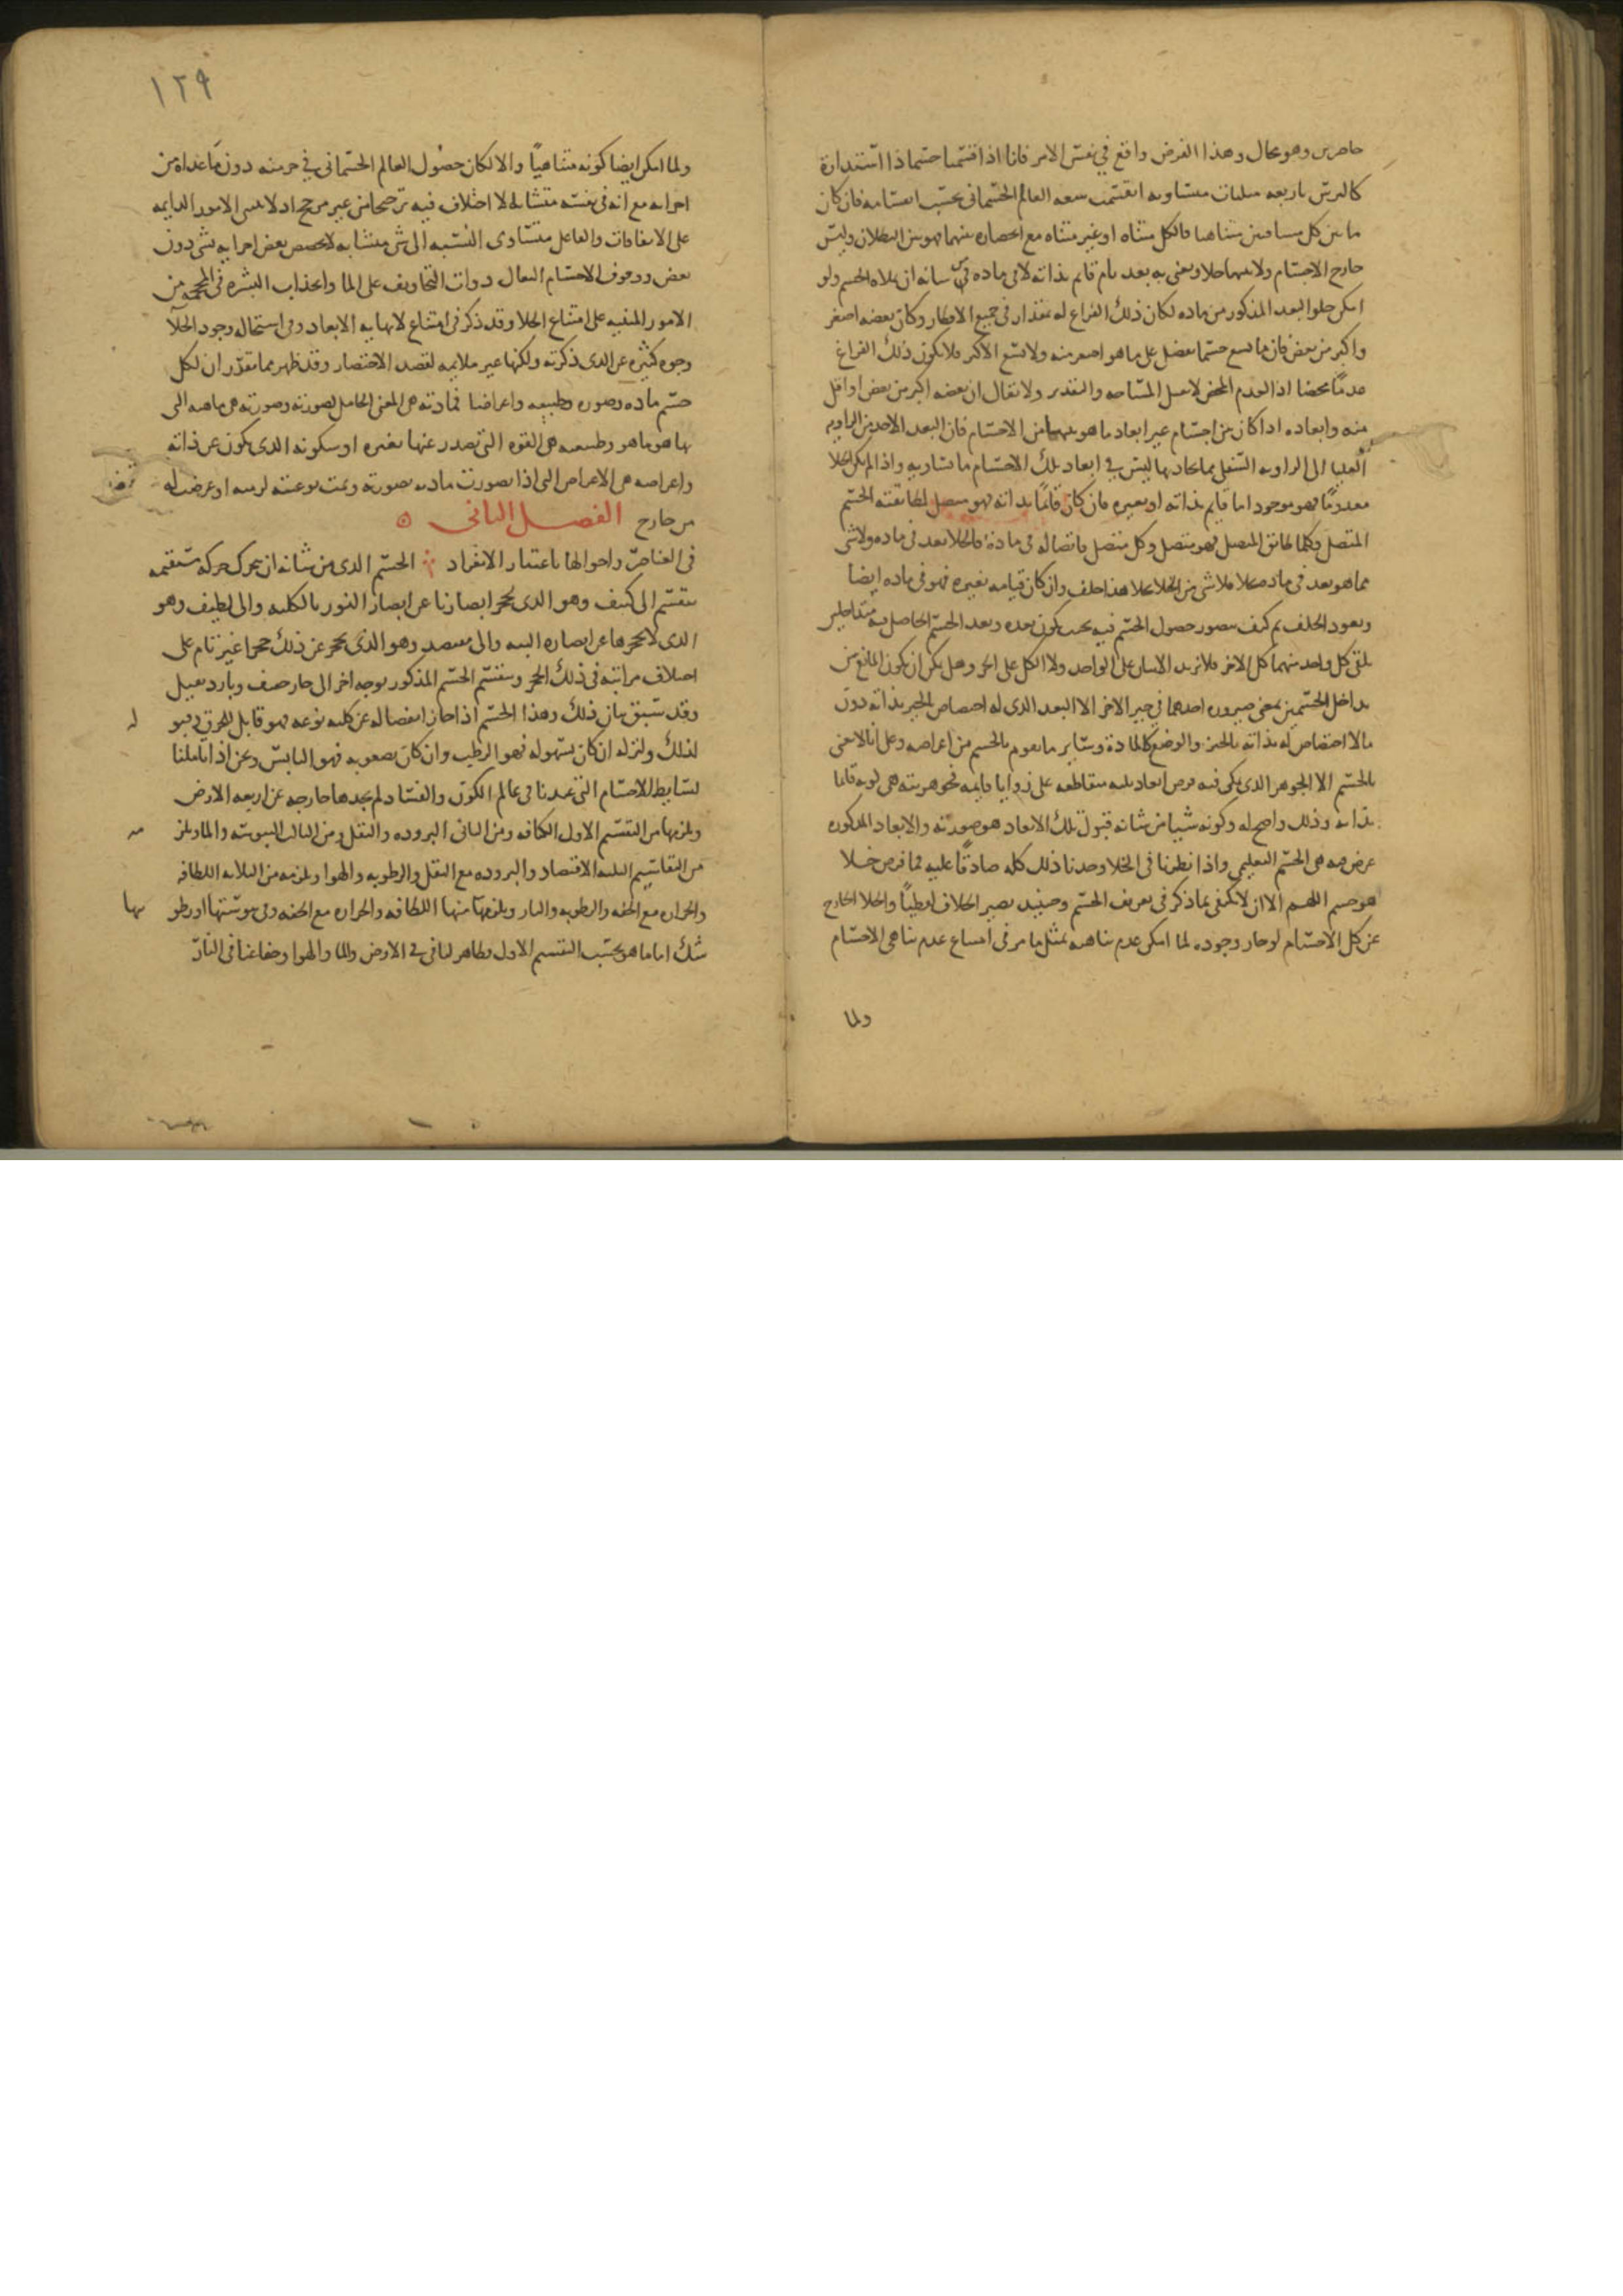 حاصرين وهو محال وهذا الفرض واقع في نفس الامر فانا اذا قسمنا جسما ذا استدارة
كالترس باربعه مثلثات متساويه انقسمت سعه العالم الجسماني بحسب انقسامه فان كان
ما بين كل متناهيا فالكل متناه او غير متناه مع انحصاره بينهما فهو بين البطلان وليس
خارج الاجسام ولا بينها خلا ونعني به بعد تام قايم بذاته لا في ماده من شانه ان يملاه الجسم ولو
امكن خلو البعد المذكور من ماده لكان ذلك الفراغ له مقدار في جميع الاقطار وكان بعضه اصغر
واكبر من بعض فان ما يسع جسما يفضل على ما هو اصغر منه ولا يسع الاكبر فلا يكون ذلك الفراغ
عدما محضا اذ العدم المحض لا يقبل المساحه والتقدير ولا يقال ان بعضه اكبر من بعض او اقل
منه وابعاده اذا كان بين اجسام غير ابعاد ما هو بينها من الاجسام فان البعد الاخذ من الزاويه
العليا الى الزاويه السفلى مما يحاذيها ليس في ابعاد تلك الاجسام ما يساويه واذا لم يكن الخلا
معدوما فهو موجود اما قايم بذاته او بغيره فان كان قائما بذاته فهو متصل لمطابقته الجسم
المتصل وكلما طابق المتصل فهو متصل وكل متصل فاتصاله في مادة فالخلا بعد في ماده ولا شي
مما هو بعد في ماده بخلا فلا شي من الخلا بخلا هذا خلف وان كان قيامه بغيره فهو في ماده ايضا
ويعود الخلف ثم كيف يتصور حصول الجسم فيه بحيث يكون بعده وبعد الجسم الحاصل فيه متداخلين
يلقى كل واحد منهما كل الاخر فلا يزيد الاثنان على الواحد ولا الكل على الجزو هل يمكن ان يكون المانع من
تداخل الجسمين بمعنى صيروره احدهما في حيز الاخر الا البعد الذي له اختصاص بالحيز بذاته دون
ما لا اختصاص له بذاته بالحيز والوضع كالمادة وساير ما يقوم بالجسم من اعراضه وعلى انا لا نعني
بالجسم الا الجوهر الذي يمكن فيه فرض ابعاد ثلثه متقاطعه على زوايا قايمه فجوهريته هي كونه قايما
بذاته وذلك واضح له وكونه شيا من شانه قبول تلك الابعاد هو صورته والابعاد المذكوره
عرض فيه هي الجسم التعليمي واذا نظرنا في الخلا وجدنا ذلك كله صادقا عليه فما فرض خلا
هو جسم اللهم الا ان لا نكتفي بما ذكر في تعريف الجسم وحينيذ يصير الخلاف لفظيا والخلا الخارج
عن كل الاجسام لو جاز وجوده لما امكن عدم تناهيه بمثل ما مر في امتناع عدم تناهي الاجسام
ولما
١٢٩
ولما امكن ايضا كونه متناهيا والا لكان حصول العالم الجسماني في جز منه دون ما عداه من
اجزايه مع انه في نفسه متشابه لا اختلاف فيه ترجيحا من غير مرجح اذ لا تبنى الامور الدايمه
على الاتفاقات والفاعل متساوى النسبه الى شي متشابه لا يخصص بعض اجزايه بشي دون
بعض ووقوف الاجسام الثقال ذوات التجاويف على الما وانجذاب البشره في المحجمه من
الامور المنبهه على امتناع الخلا وقد ذكر في امتناع لا نهايه الابعاد وفي استحاله وجود الخلا
وجوه كثيره غير الذي ذكرته ولكنها غير ملايمه لقصد الاختصار وقد ظهر مما تقرر ان لكل
جسم ماده وصوره وطبيعه واعراضا فمادته هي المعنى الحامل لصورته وصورته هي ماهيته التي
بها هو ما هو وطبيعته هي القوه التي تصدر عنها تغيره او سكونه الذي يكون عن ذاته
واعراضه هي الاعراض التي اذا تصورت مادته بصورته وتمت نوعيته لزمته او عرضت له
من خارج الفصل الثاني
في العناصر واحوالها باعتبار الانفراد الجسم الذي من شانه ان يتحرك حركه مستقيمه
ينقسم الى كثيف وهو الذي يحجز ابصارنا عن ابصار النور بالكليه والى لطيف وهو
الذي لا يحجزها عن ابصاره البته والى مقتصد وهو الذي يحجز عن ذلك حجزا غير تام على
اختلاف مراتبه في ذلك الحجز وينقسم الجسم المذكور بوجه اخر الى حار خفيف وبارد ثقيل
وقد سبق بيان ذلك وهذا الجسم اذا جاز انفصاله عن كليه نوعه فهو قابل للخرق وقبوله
لذلك ولتركه ان كان بسهوله فهو الرطب وان كان بصعوبه فهو اليابس ونحن اذا تاملنا
بسايط الاجسام التي عندنا في عالم الكون والفساد لم نجدها خارجه عن اربعه الارض
ويلزمها من التقسيم الاول الكثافه ومن الثاني البروده والثقل ومن الثالث اليبوسه والما ويلزمه
من التقاسيم الثلثه الاقتصاد والبروده مع الثقل والرطوبه والهوا ويلزمه من الثلاثه اللطافه
والحراره مع الخفه والرطوبه والنار ويلزمها منها اللطافه والحراره مع الخفه وفي يبوستها او رطوبتها
شك اما ما هو بحسب التقسيم الاول فظاهر لنا في الارض والما والهوا وخفا عنا في النار